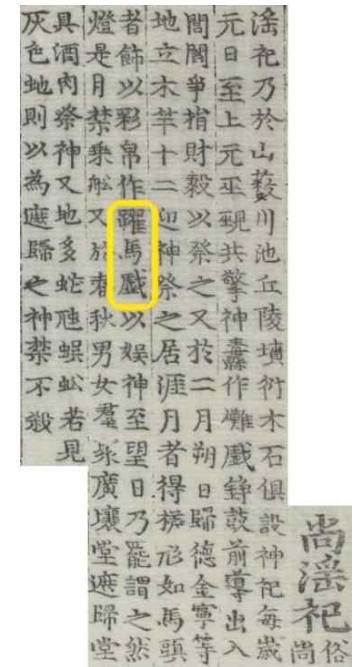 尚淫祀
俗
尚
淫祀乃於山藪川池丘陵墳衍木石俱設神祀每歲
元日至上元巫覡共擎神纛作儺戲錚鼓前導出入
閭閻爭捐財穀以祭之又於二月朔日歸德金寧等
地立木竿十二迎神祭之居涯月者得槎形如馬頭
者飾以彩帛作躍馬戲以娛神至望日乃罷謂之然
燈是月禁乘舩又於春秋男女羣聚廣壤堂遮歸堂
具酒肉祭神又地多蛇虺蜈蚣若見
灰色虵則以為遮歸之神禁不殺